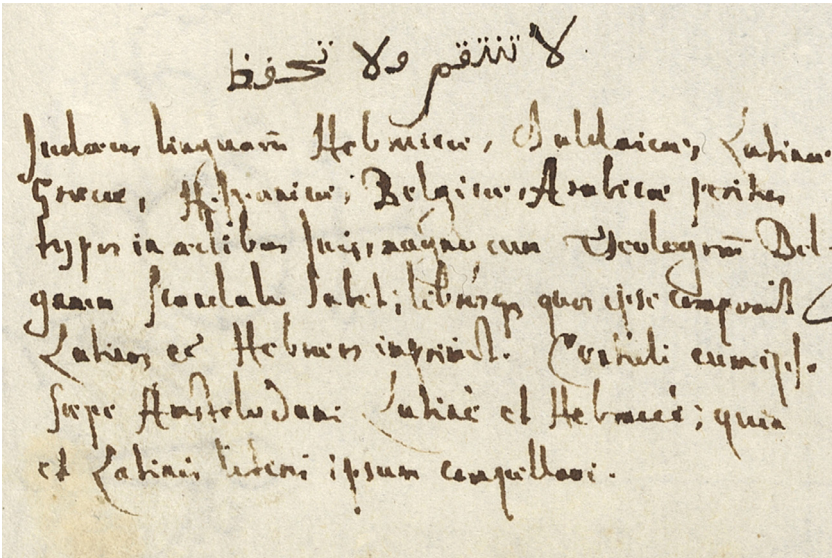 لا تنتقم ولا تحفظ
Judæus linguarū Hebraicæ, Chaldaicæ, Latinæ
Græcæ, Hispanicæ, Belgicæ, Arabicæ peritus
typos in ædibus suis, magno cum Theologorū Bel-
garum scandalo habet; librosq quos ipse composuit
Latinos et Hebræos imprimit. cum ipso
sæpe Amstelodami Latinè et Hebraicè; quin
et Latinis literis ipsum compellavi.